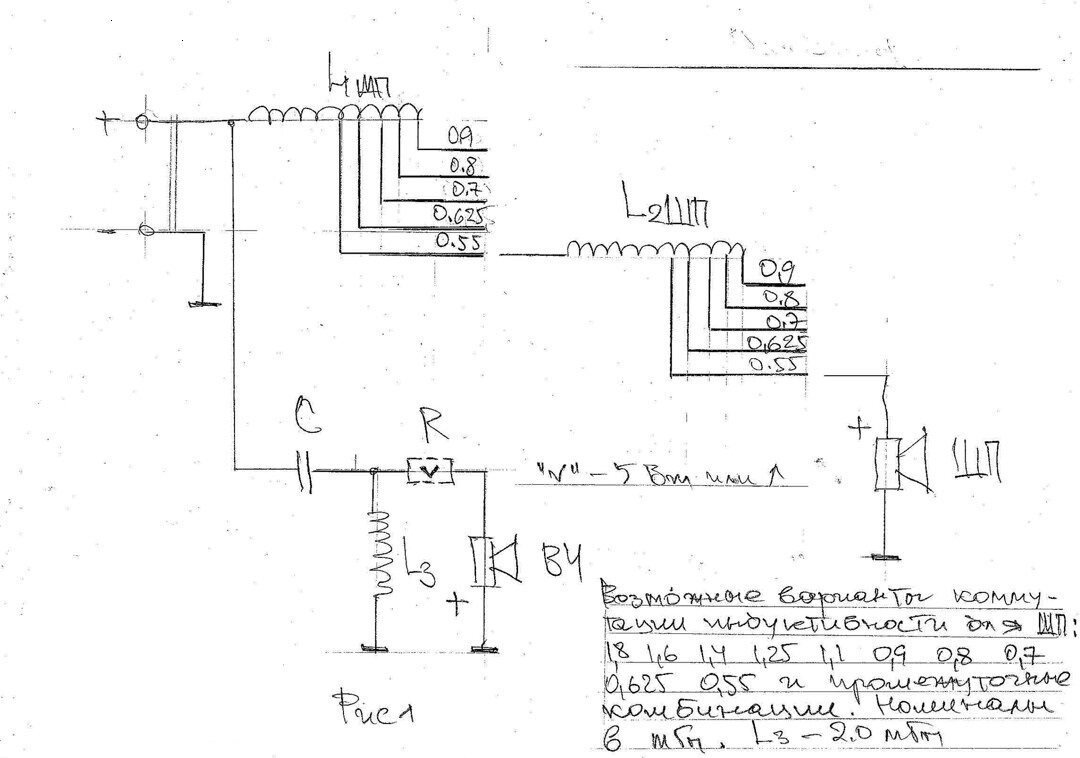 L1ШП
+
0,9
0.8
0.7
0.625
0.55
-
L2ШП
0,9
0,8
0,7
0,625
0.55
C
R
"V" – 5 Вт или ↑
+
ШП
L3
ВЧ
+
Возможные варианты комму-
тации индуктивности для ШП:
1,8 1,6 1,4 1,25 1,1 0,9 0,8 0,7
0,625 0,55 и промежуточные
комбинации. Номиналы
в мГн. L3 – 2.0 мГн
Рис1